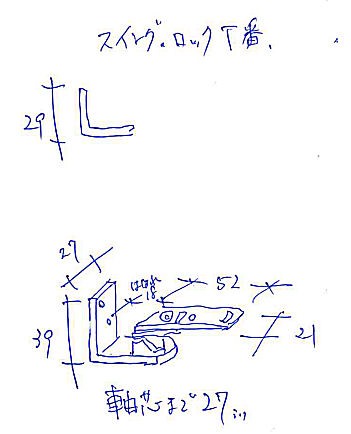 スイング・ロック丁番.
29
27
52
18
39
21
軸芯まで27ミリ